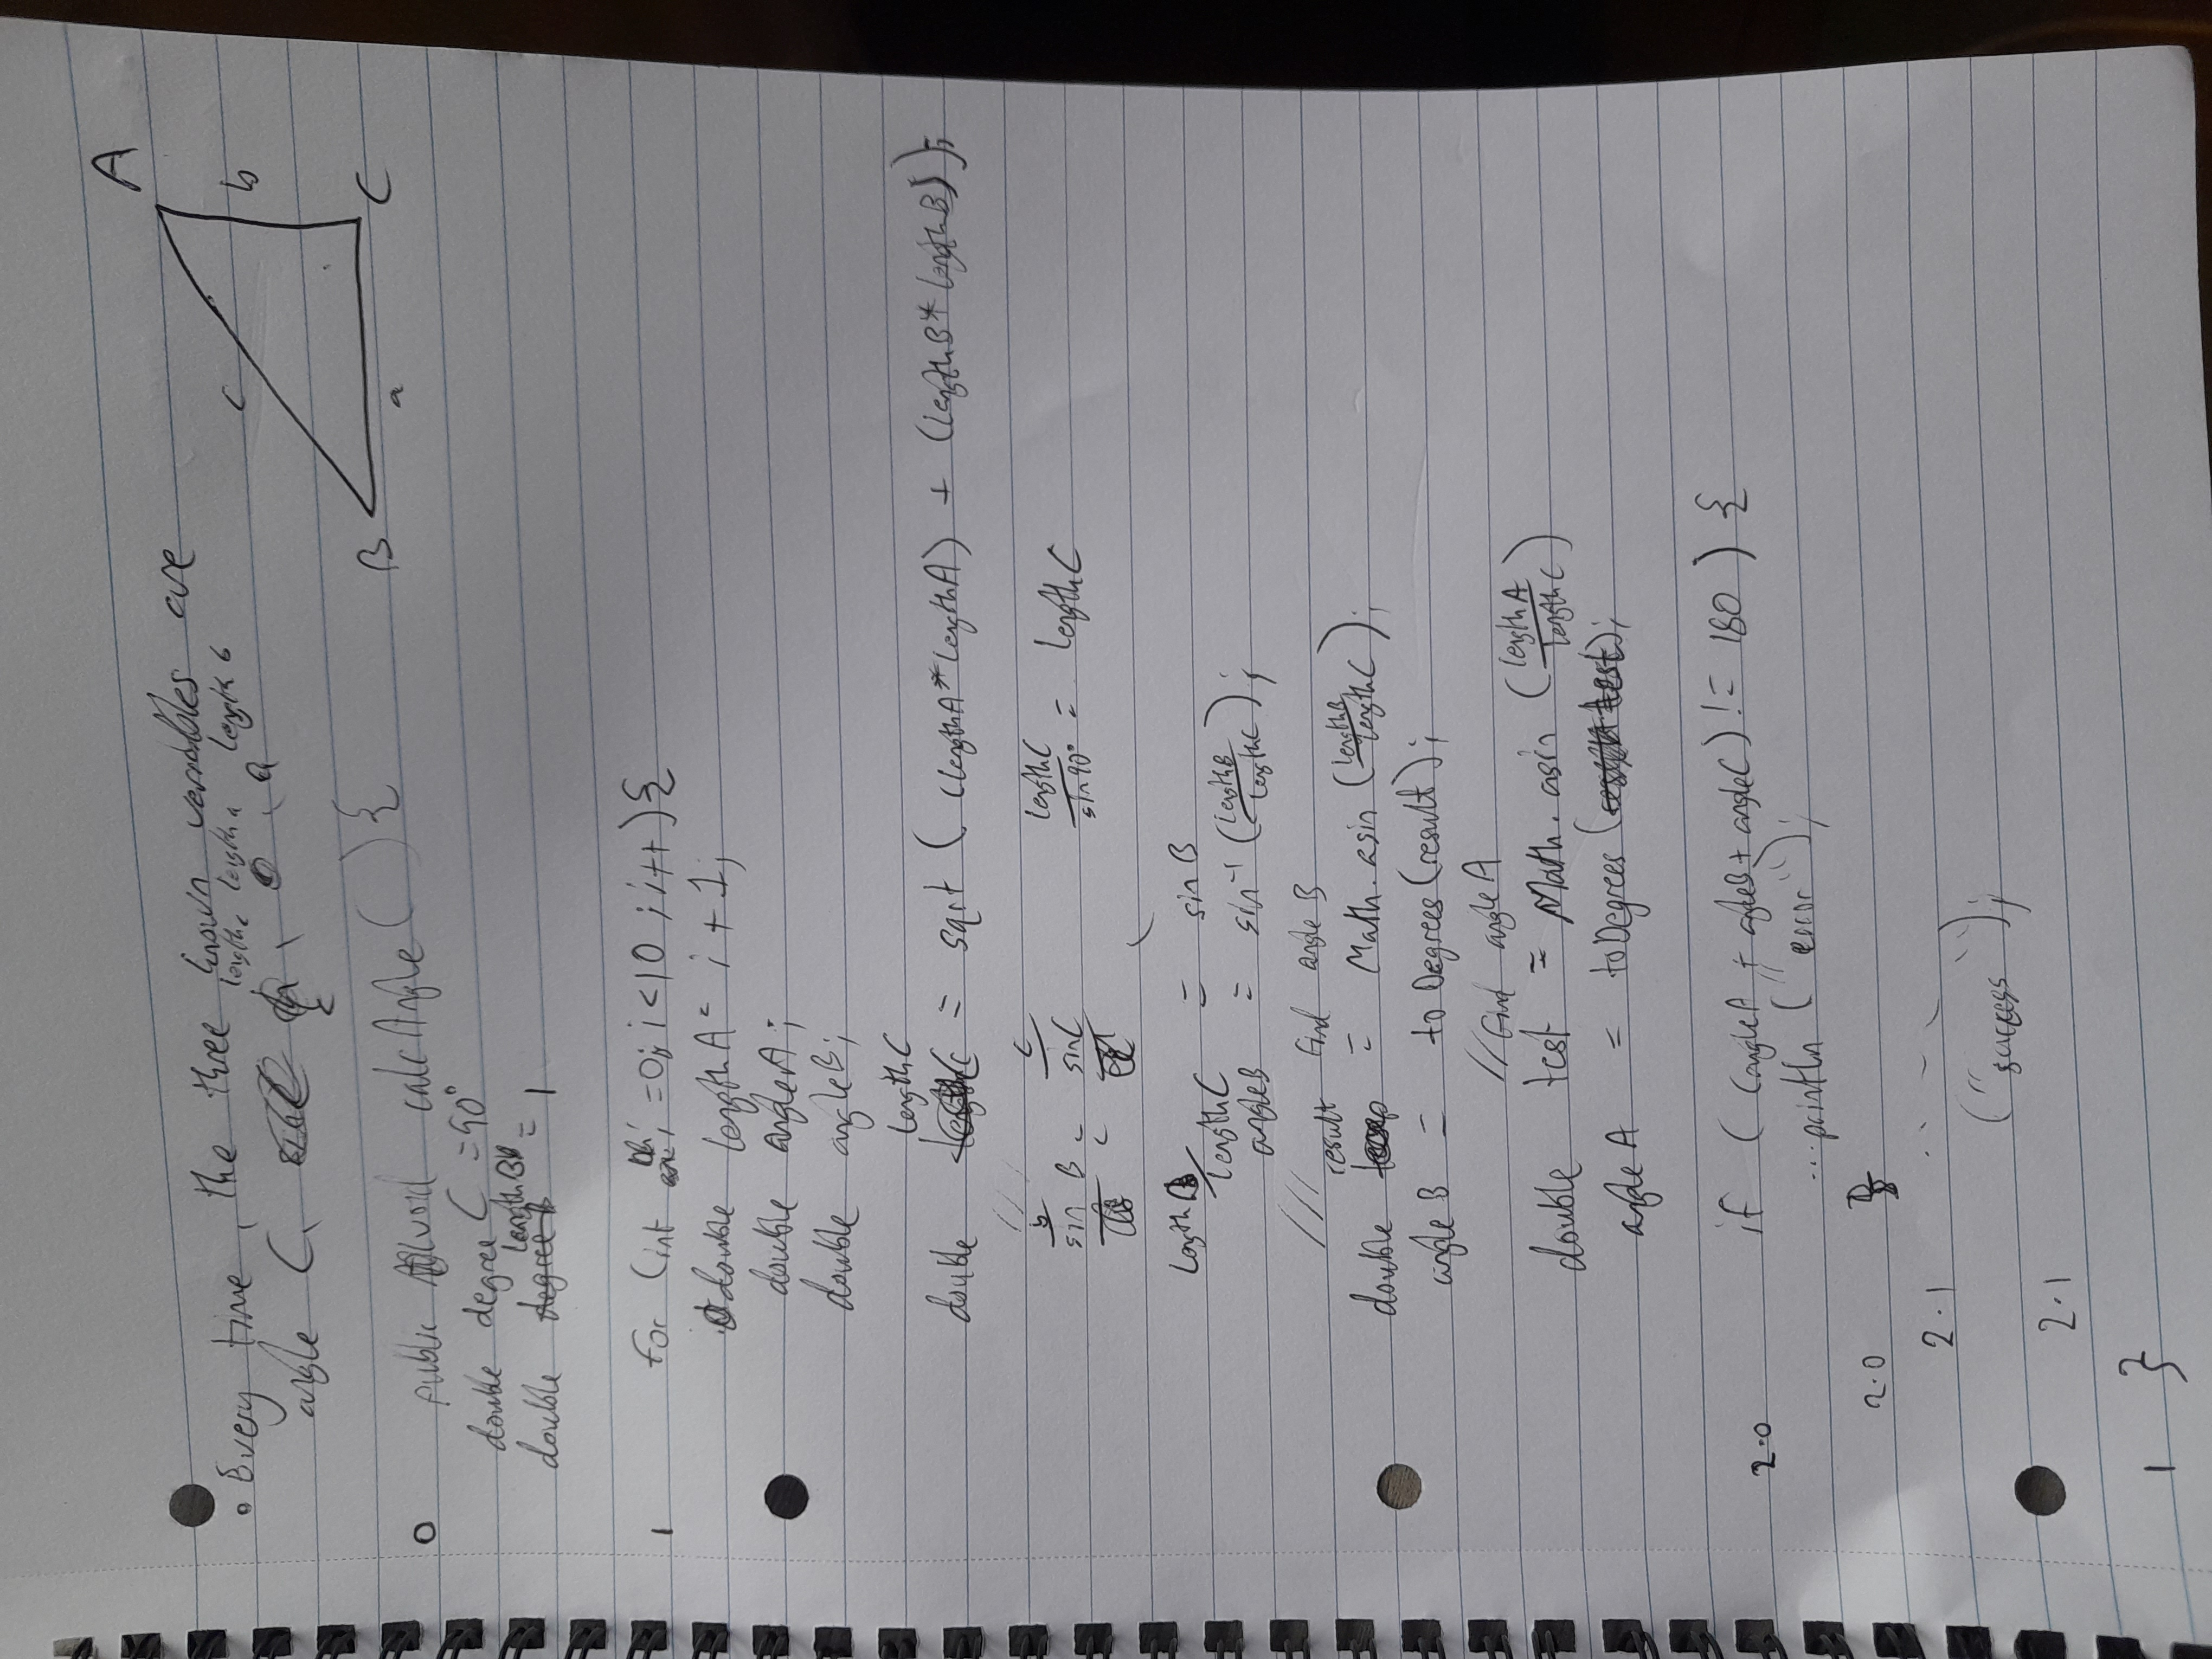 A
• Every time, the three known variables are
lengthc length a length b
angle C, h, o, a
c
c
b
B
a
C
0 public void calcAngle ( ) {
double degree C = 90°
lengthB
double degree B = 1
1 for (int i = 0; i < 10 ; i++) {
double lengthA = i + 1;
double angleA;
double angleB;
lengthC
double = sqrt ( (lengthA * lengthA) + (lengthB * lengthB) );
///
b/sin B = c/sinC lengthC/sin90° = lengthC
lengthB/lengthC = sinB
angleB = sin⁻¹ (lengthB/lengthC);
/// find angle B
result
double = Math. asin (lengthB/lengthC);
angle B = to Degrees (result);
// find angle A
double test = Math. asin (lengthA/lengthC)
angle A = toDegrees (test);
2.0 if ( (angleA + angleB + angleC) != 180 ) {
...println ("error");
2.0 }
2.1 . . - - -
("success");
2.1
1 }